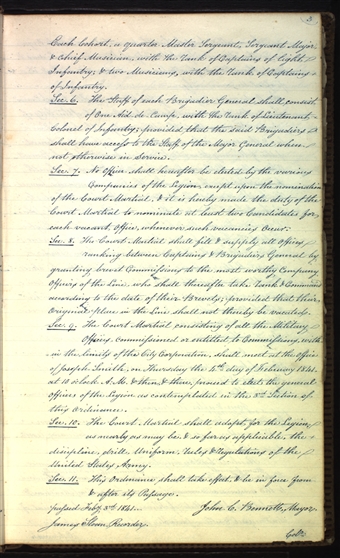 3
Each Cohort, a quarter Master Sergeant, Sergeant Major,
& Chief Musician, with the Rank of Captains of Light
Infantry; & two Musicians, with the Rank of Captains
of Infantry.
Sec. 6. The Staff of each Brigadier General shall consist
of One Aid de Camp, with the Rank of Lieutenant-
Colonel of Infantry; provided that the said Brigadiers
shall have access to the Staff of the Major General when
not otherwise in Service.
Sec. 7. No Officer shall hereafter be elected by the various
Companies of the Legion, except upon the nomination
of the Court Martial, & it is hereby made the duty of the
Court Martial to nominate at least two Candidates for,
each vacant Office, whenever such vacancies Occur.
Sec. 8. The Court Martial shall fill & supply all Offices
ranking between Captains & Brigadiers General by
granting brevet Commissions to the most worthy Company
Officers of the Line, who shall thereafter take Rank & Command
according to the date of their Brevets; provided that their
Original place in the Line shall not thereby be vacated.
Sec. 9. The Court Martial consisting of all the Military
Officers, commissioned or entitled to Commissions, with
in the limits of the City Corporation, shall meet at the Office
of Joseph Smith, on Thursday the 4th day of February 1841,
at 10 o'clock A.M. & then & there, proceed to elect the general
Officers of the Legion as contemplated in the 3rd Section of
this Ordinance.
Sec. 10. The Court Martial shall adopt for the Legion
as nearly as may be & so far as applicable, the
discipline, drill, Uniform, Rules & Regulations of the
United States Army.
Sec. 11. This Ordinance shall take effect & be in force from
& after its Passage.
passed Feby. 3rd 1841.— John C. Bennett, Mayor.
James Sloan Recorder.